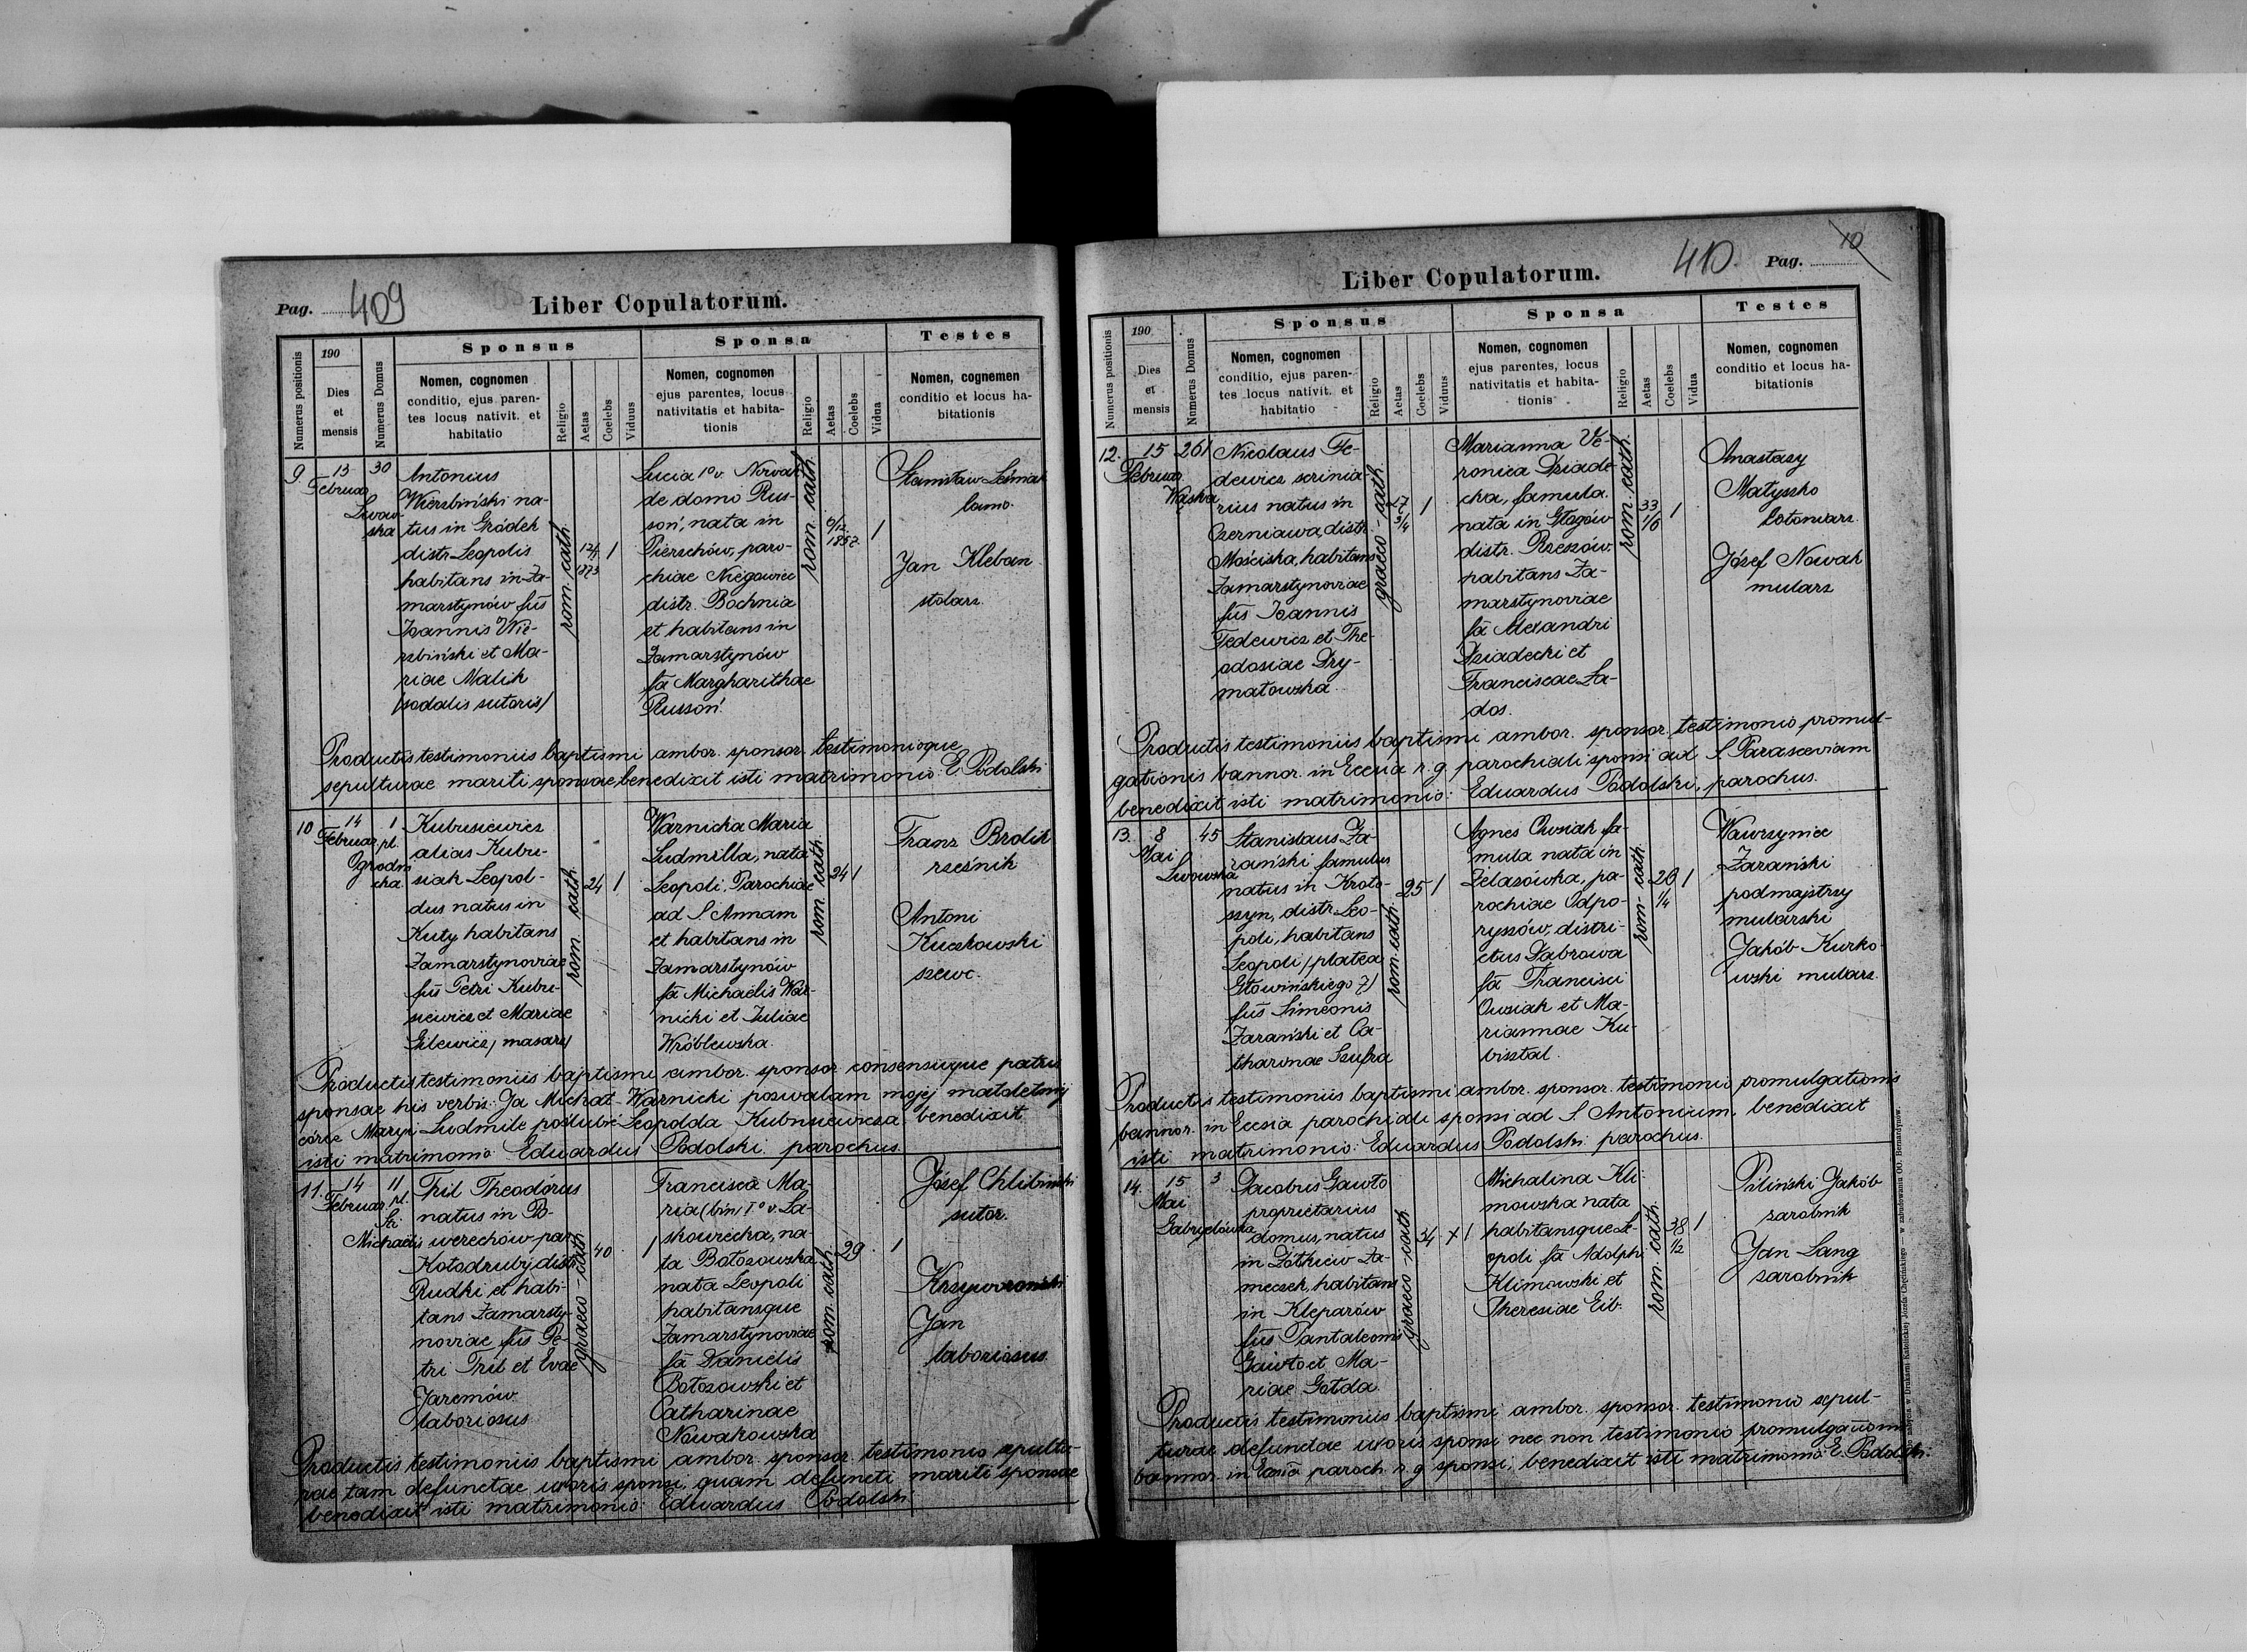 Pag. 409
Liber Copulatorum.
Numerus positionis
190
Dies et mensis
Numerus Domus
Sponsus
Nomen, cognomen
conditio, ejus paren-
tes locus nativit. et
habitatio
Religio
Aetas
Coelebs
Viduus
Sponsa
Nomen, cognomen
ejus parentes, locus
nativitatis et habita-
tionis
Religio
Aetas
Coelebs
Vidua
Testes
Nomen, cognemen
conditio et locus ha-
bitationis
9
13
Februar
30
Lwow-
ska
Antonius
Wierzbiński na-
tus in Gródek
distr. Leopolis
habitans in Za-
marstynów fūs
Joannis Wie-
rzbiński et Ma-
riae Malik
/sodalis sutoris/
rom. cath.
12/4
1873
1
Lucia 1º v. Nowak
de domo Rus-
soń, nata in
Pierzchów, paro-
chiae Niegowiec
distr. Bochnia
et habitans in
Zamarstynów
fa Margharithae
Russoń.
rom. cath.
6/12
1857
1
Stanisław
Jan Kleban
stolarz.
Productis testimoniis baptismi ambor. sponsor. testimonioque
sepulturae mariti sponsae benedixit isti matrimonio: E. Podolski
10
14
Februar.
1
pl.
Ogrodni
cka
Kubusiewicz
alias Kubu-
siak Leopol-
dus natus in
Kuty habitans
Zamarstynoviae
fūs Petri Kubu-
siewicz et Mariae
Gilewicz, masarz
rom. cath.
24
1
Warnicka Maria
Ludmilla, nata
Leopoli, Parochiae
ad S. Annam
et habitans in
Zamarstynów
fa Michaelis War-
nicki et Juliae
Wróblewska.
rom. cath.
24
1
Franz Brodik
rzeźnik
Antoni
Kuczkowski
szewc.
Productis testimoniis baptismi ambor. sponsor. consensuque patris
sponsae his verbis: Ja Michał Warnicki pozwalam mojej małoletniej
córce Maryi Ludmile poślubić Leopolda Kubusiewicza benedixit
isti matrimonio Eduardus Podolski. parochus.
11.
14
Februar.
11
pl.
St.
Michaelis
Fril Theodorus
natus in Po-
werechów par.
Kołodruby, distr.
Rudki et habi-
tans Zamarsty-
noviae fūs Pe-
tri Fril et Evae
Jaremów
laboriosus
graeco-cath.
40
1
Francisca Ma-
ria (bin) 1º v. La-
skowiecka, na-
ta Bołozowska
nata Leopoli
habitansque
Zamarstynoviae
fa Danielis
Bołozowski et
Catharinae
Nowakowska
rom. cath.
29
1
Józef Chlibiński
sutor.
Krzyworoński
Jan
laboriosus.
Productis testimoniis baptismi ambor. sponsor. testimonio sepultu-
rae tam defunctae uxoris sponsi, quam defuncti mariti sponsae
benedixit isti matrimonio: Eduardus Podolski
Liber Copulatorum.
410.
Pag. 10
Numerus positionis
190
Dies
et
mensis
Numerus Domus
Sponsus
Nomen, cognomen
conditio, ejus paren-
tes locus nativit. et
habitatio
Religio
Aetas
Coelebs
Viduus
Sponsa
Nomen, cognomen
ejus parentes, locus
nativitatis et habita-
tionis
Religio
Aetas
Coelebs
Vidua
Testes
Nomen, cognomen
conditio et locus ha-
bitationis
12.
15
Februar.
261
Wąska
Nicolaus Fe-
dewicz scrinia-
rius natus in
Czerniawa, distr.
Mościska, habitans
Zamarstynoviae
fūs Joannis
Fedewicz et The-
odosiae Dry-
matowska.
graeco-cath.
27
3/4
1
Marianna Ve-
ronica Dziade-
cka, famula.
nata in Głogów
distr. Rzeszów.
habitans Za-
marstynoviae
fa Alexandri
Dziadecki et
Franciscae Za-
dos.
rom. cath.
33
1/6
1
Anastazy
Matyszko
Józef Nowak
mularz
Productis testimoniis baptismi ambor. sponsor. testimonio promul-
gationis bannor. in Eccsia r. g. parochiali sponsi ad S. Parasceviam
benedixit isti matrimonio: Eduardus Podolski, parochus.
13.
8
Mai
45
Lwowska
Stanislaus Ża-
rański famulus
natus in Kroto-
szyn, distr. Leo-
poli, habitans
Leopoli /platea
Głowińskiego 7/
fūs Simeonis
Żarański et Ca-
tharinae Szufra
rom. cath.
25
1
Agnes Owsiak fa-
mula nata in
Żelazówka, pa-
rochiae Odpo-
ryszów, distri-
ctus Dąbrowa
fa Francisci
Owsiak et Ma-
riannae Ku-
bisztal.
rom. cath.
26
1/4
1
Wawrzyniec
Żarański
podmajstrzy
mularski
Jakób Kurko-
wski mularz.
Productis testimoniis baptismi ambor. sponsor. testimonio promulgationis
bannor. in Eccsia parochiali sponsi ad S. Antonium, benedixit
isti matrimonio: Eduardus Podolski parochus.
14.
15
Mai
3
Gabryelówka
Jacobus Gawło
proprietarius
domus, natus
in Żółkiew Za-
meczek, habitans
in Kleparów
fūs Pantaleonis
Gawło et Ma-
riae Gołda
graeco-cath.
34
+
1
Michalina Kli-
mowska nata
habitansque Le-
opoli fa Adolphi
Klimowski et
Theresiae Eib.
rom. cath.
38
1/2
1
Piliński Jakób
zarobnik
Jan Lang
zarobnik
Productis testimoniis baptismi ambor. sponsor. testimonio sepul-
turae defunctae uxoris sponsi nec non testimonio promulgationis
bannor. in Eccsia paroch. r. g. sponsi, benedixit isti matrimonio E. Podolski.
w Drukarni Katolickiej Józefa Chęcińskiego — w zabudowaniu OO. Bernardynów.